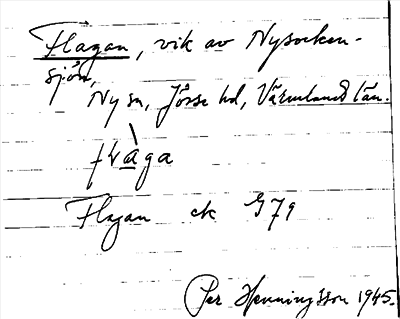 Flagan, vik av Nysocken-
sjön,
Ny sn, Jösse hd, Värmlands län.
flàga
Flagan ek G79
Per Henningsson 1945.